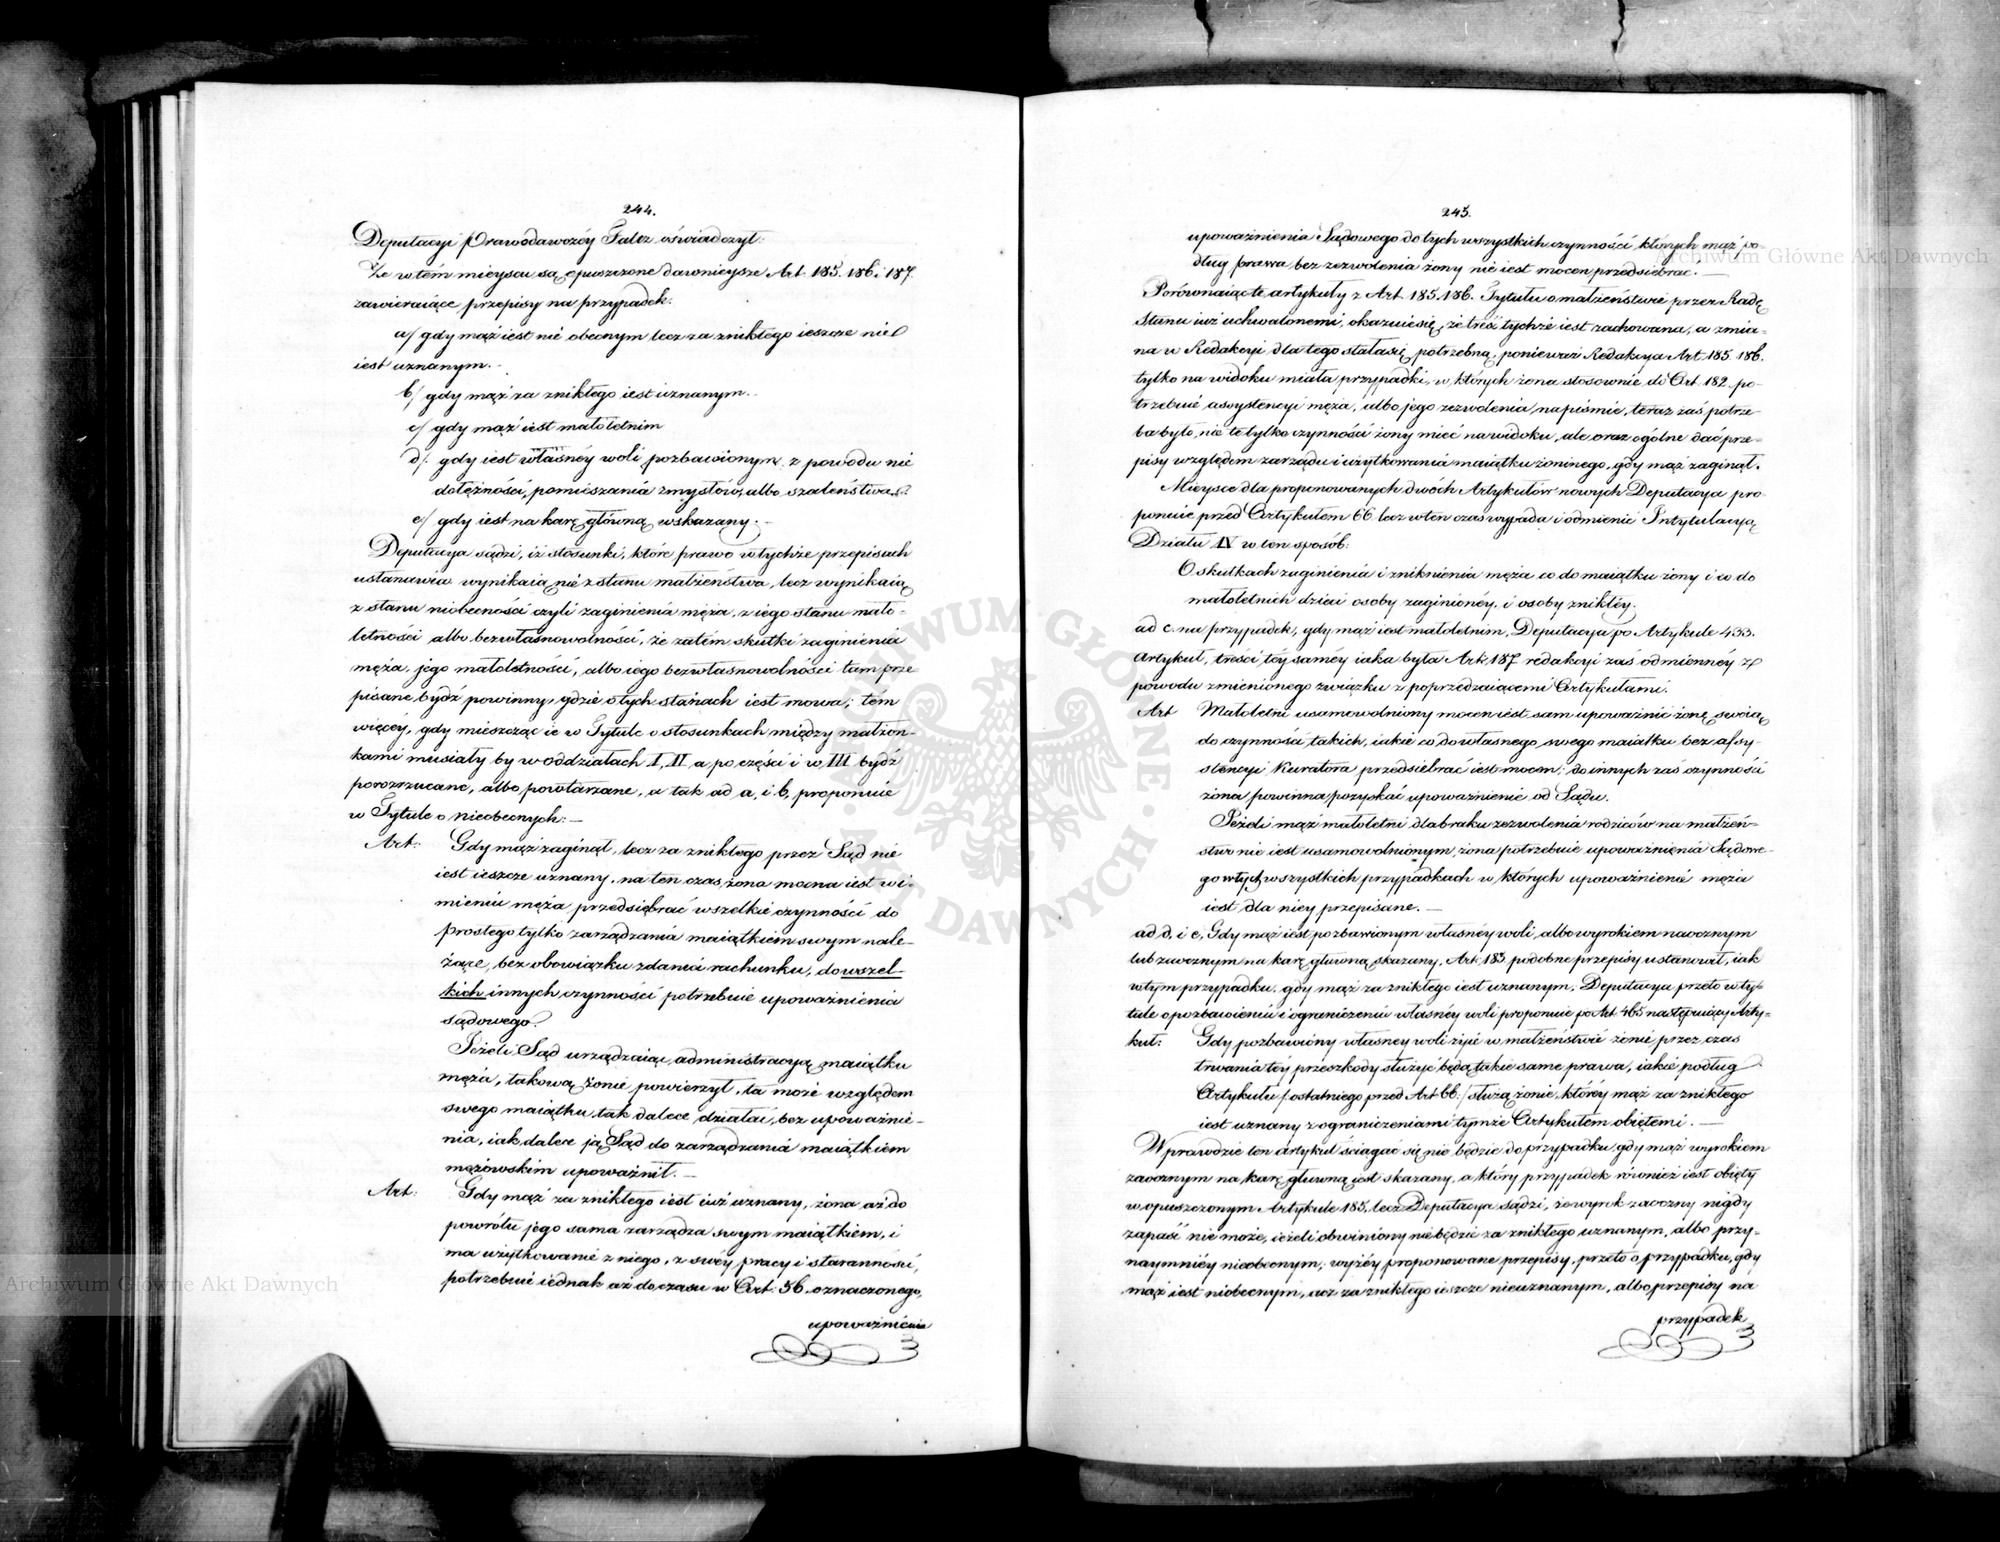 244.
Deputacyi Prawodawczéy Falcz oświadczył:
Że w tém mieyscu są opuszczone dawnieysze Art. 185. 186. i 187.
zawieraiące przepisy na przypadek:
a/ gdy mąż iest nie obecnym lecz za znikłego ieszcze nie
iest uznanym.
b/ gdy mąż za znikłego iest uznanym.
c/ gdy mąż iest małoletnim
d/ gdy iest własnéy woli pozbawionym z powodu nie
dołężności, pomieszania zmysłów, albo szaleństwa.
e/ gdy iest na karę główną wskazany:
Deputacya sądzi, iż stosunki, które prawo w tychże przepisach
ustanawia wynikaią nie z stanu małżeństwa, lecz wynikaią
z stanu niobecności czyli zaginienia męża, z iego stanu mało-
letności albo bezwłasnowolności, że zatém skutki zaginienia
męża, jego małoletności, albo iego bezwłasnowolności tam prze
pisane bydź powinny, gdzie o tych stanach iest mowa; tém
więcéy, gdy mieszcząc ie w Tytule o stosunkach między małżon-
kami musiały by w oddziałach I, II a po części i w III bydź
porozrzucane, albo powtarzane, a tak ad a, i b, proponuie
w Tytule o nieobecnych: —
Art: Gdy mąż zaginął, lecz za znikłego przez Sąd nie
iest ieszcze uznany, na ten czas żona mocna iest w i-
mieniu męża przedsiębrać wszelkie czynności do
prostego tylko zarządzania maiątkiem swym nale-
żące, bez obowiązku zdania rachunku, do wszel-
kich innych czynności potrzebuie upoważnienia
sądowego.
Jeżeli Sąd urządzaiąc administracyą maiątku
męża, takową żonie powierzył, ta może względem
swego maiątku tak dalece działać, bez upoważnie-
nia, iak dalece ją Sąd do zarządzania maiątkiem
mężowskim upoważnił. —
Art: Gdy mąż za znikłego iest iuż uznany, żona aż do
powrótu jego sama zarządza swym maiątkiem, i
ma użytkowanie z niego, z swéy pracy i staranności,
potrzebuie iednak aż do czasu w Art: 56. oznaczonego,
upoważnienia
245.
upoważnienia Sądowego do tych wszystkich czynności, których mąż po-
dług prawa bez zezwolenia żony nie iest mocen przedsiebrać. —
Porównaiąc te artykuły z Art. 185. 186. Tytułu o małżeństwie przez Radę
Stanu iuż uchwalonemi, okazuie się, że treść tychże iest zachowana, a zmia-
na w Redakcyi dla tego stała się potrzebną, ponieważ Redakcya Art. 185. 186.
tylko na widoku miała przypadki, w których żona stosownie do Art. 182. po-
trzebuie assystencyi męża, albo jego zezwolenia na piśmie, teraz zaś potrze-
ba było, nie te tylko czynności żony mieć na widoku, ale oraz ogólne dać prze-
pisy względem zarządu i użytkowania maiątku żoninego, gdy mąż zaginął.
Mieysce dla proponowanych dwóch Artykułów nowych Deputacya pro-
ponuie przed Artykułem 66. lecz w ten czas wypada i odmienić Intytulacyą
Działu IV w ten sposób:
O skutkach zaginienia i zniknienia męża co do maiątku żony i co do
małoletnich dzieci osoby zaginionéy, i osoby znikłéy.
ad c. na przypadek, gdy mąż iest małoletnim, Deputacya po Artykule 433.
Artykuł, treści téy saméy iaka była Art. 187 redakcyi zaś odmiennéy z
powodu zmienionego związku z poprzedzaiącemi Artykułami.
Art Małoletni usamowolniony mocen iest sam upoważnić żonę swoią
do czynności takich, iakie co do własnego swego maiątku bez assy-
stencyi Kuratora przedsiebrać iest mocen; do innych zaś czynności
żona powinna pozyskać upoważnienie od Sądu.
Jeżeli mąż małoletni dla braku zezwolenia rodziców na małżeń-
stwo nie iest usamowolnionym, żona potrzebuie upoważnienia Sądowe-
go w tych wszystkich przypadkach w których upoważnienie męża
iest dla niey przepisane. —
ad d, i e, Gdy mąż iest pozbawionym własney woli, albo wyrokiem naocznym
lub zaocznym na karę główną skazany, Art. 183 podobne przepisy ustanowił, iak
w tym przypadku, gdy mąż za znikłego iest uznanym. Deputacya przeto w ty-
tule o pozbawieniu i ograniczeniu własnéy woli proponuie po Art. 465 następuiący Arty-
kuł: Gdy pozbawiony własney woli żyie w małżeństwie żonie przez czas
trwania téy przeszkody służyć będą takie same prawa, iakie podług
Artykułu /: ostatniego przed Art. 66:/ służą żonie, któréy mąż za znikłego
iest uznany z ograniczeniami tymże Artykułem obiętemi. —
Wprawdzie ten artykuł ściągać się nie będzie do przypadku, gdy mąż wyrokiem
zaocznym na karę główną iest skazany, a który przypadek również iest obięty
w opuszczonym Artykule 185, lecz Deputacya sądzi, że wyrok zaoczny nigdy
zapaść nie może, ieżeli obwiniony nie będzie za znikłego uznanym, albo przy-
naymniéy nieobecnym, wyżéy proponowane przepisy, przeto o przypadku, gdy
mąż iest niobecnym, acz za znikłego ieszcze nieuznanym, albo przepisy na
przypadek
Archiwum Główne Akt Dawnych
Archiwum Główne Akt Dawnych
ARCHIWUM GŁÓWNE · AKT DAWNYCH ·